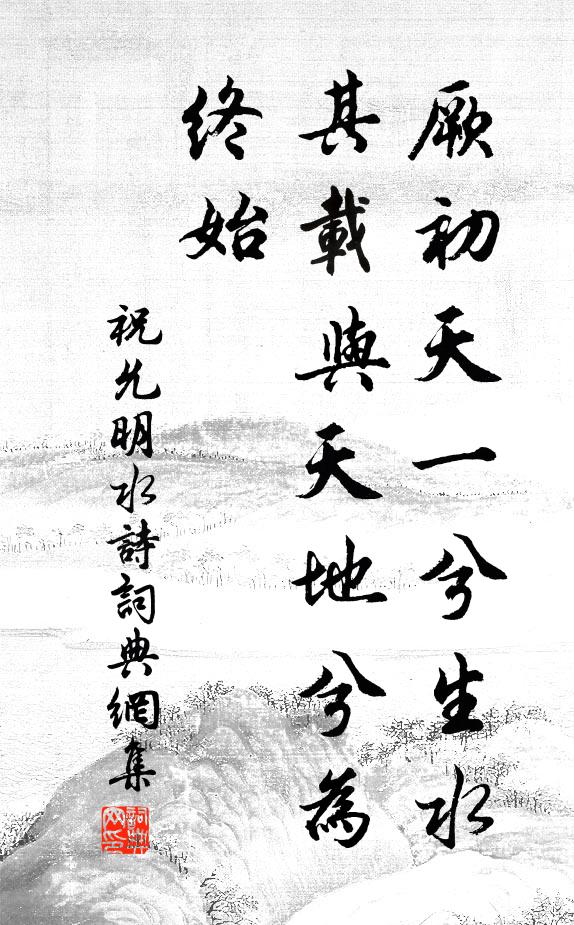 厥初天一兮生水
其載與天地兮為
終始
祝允明水詩詞典網集